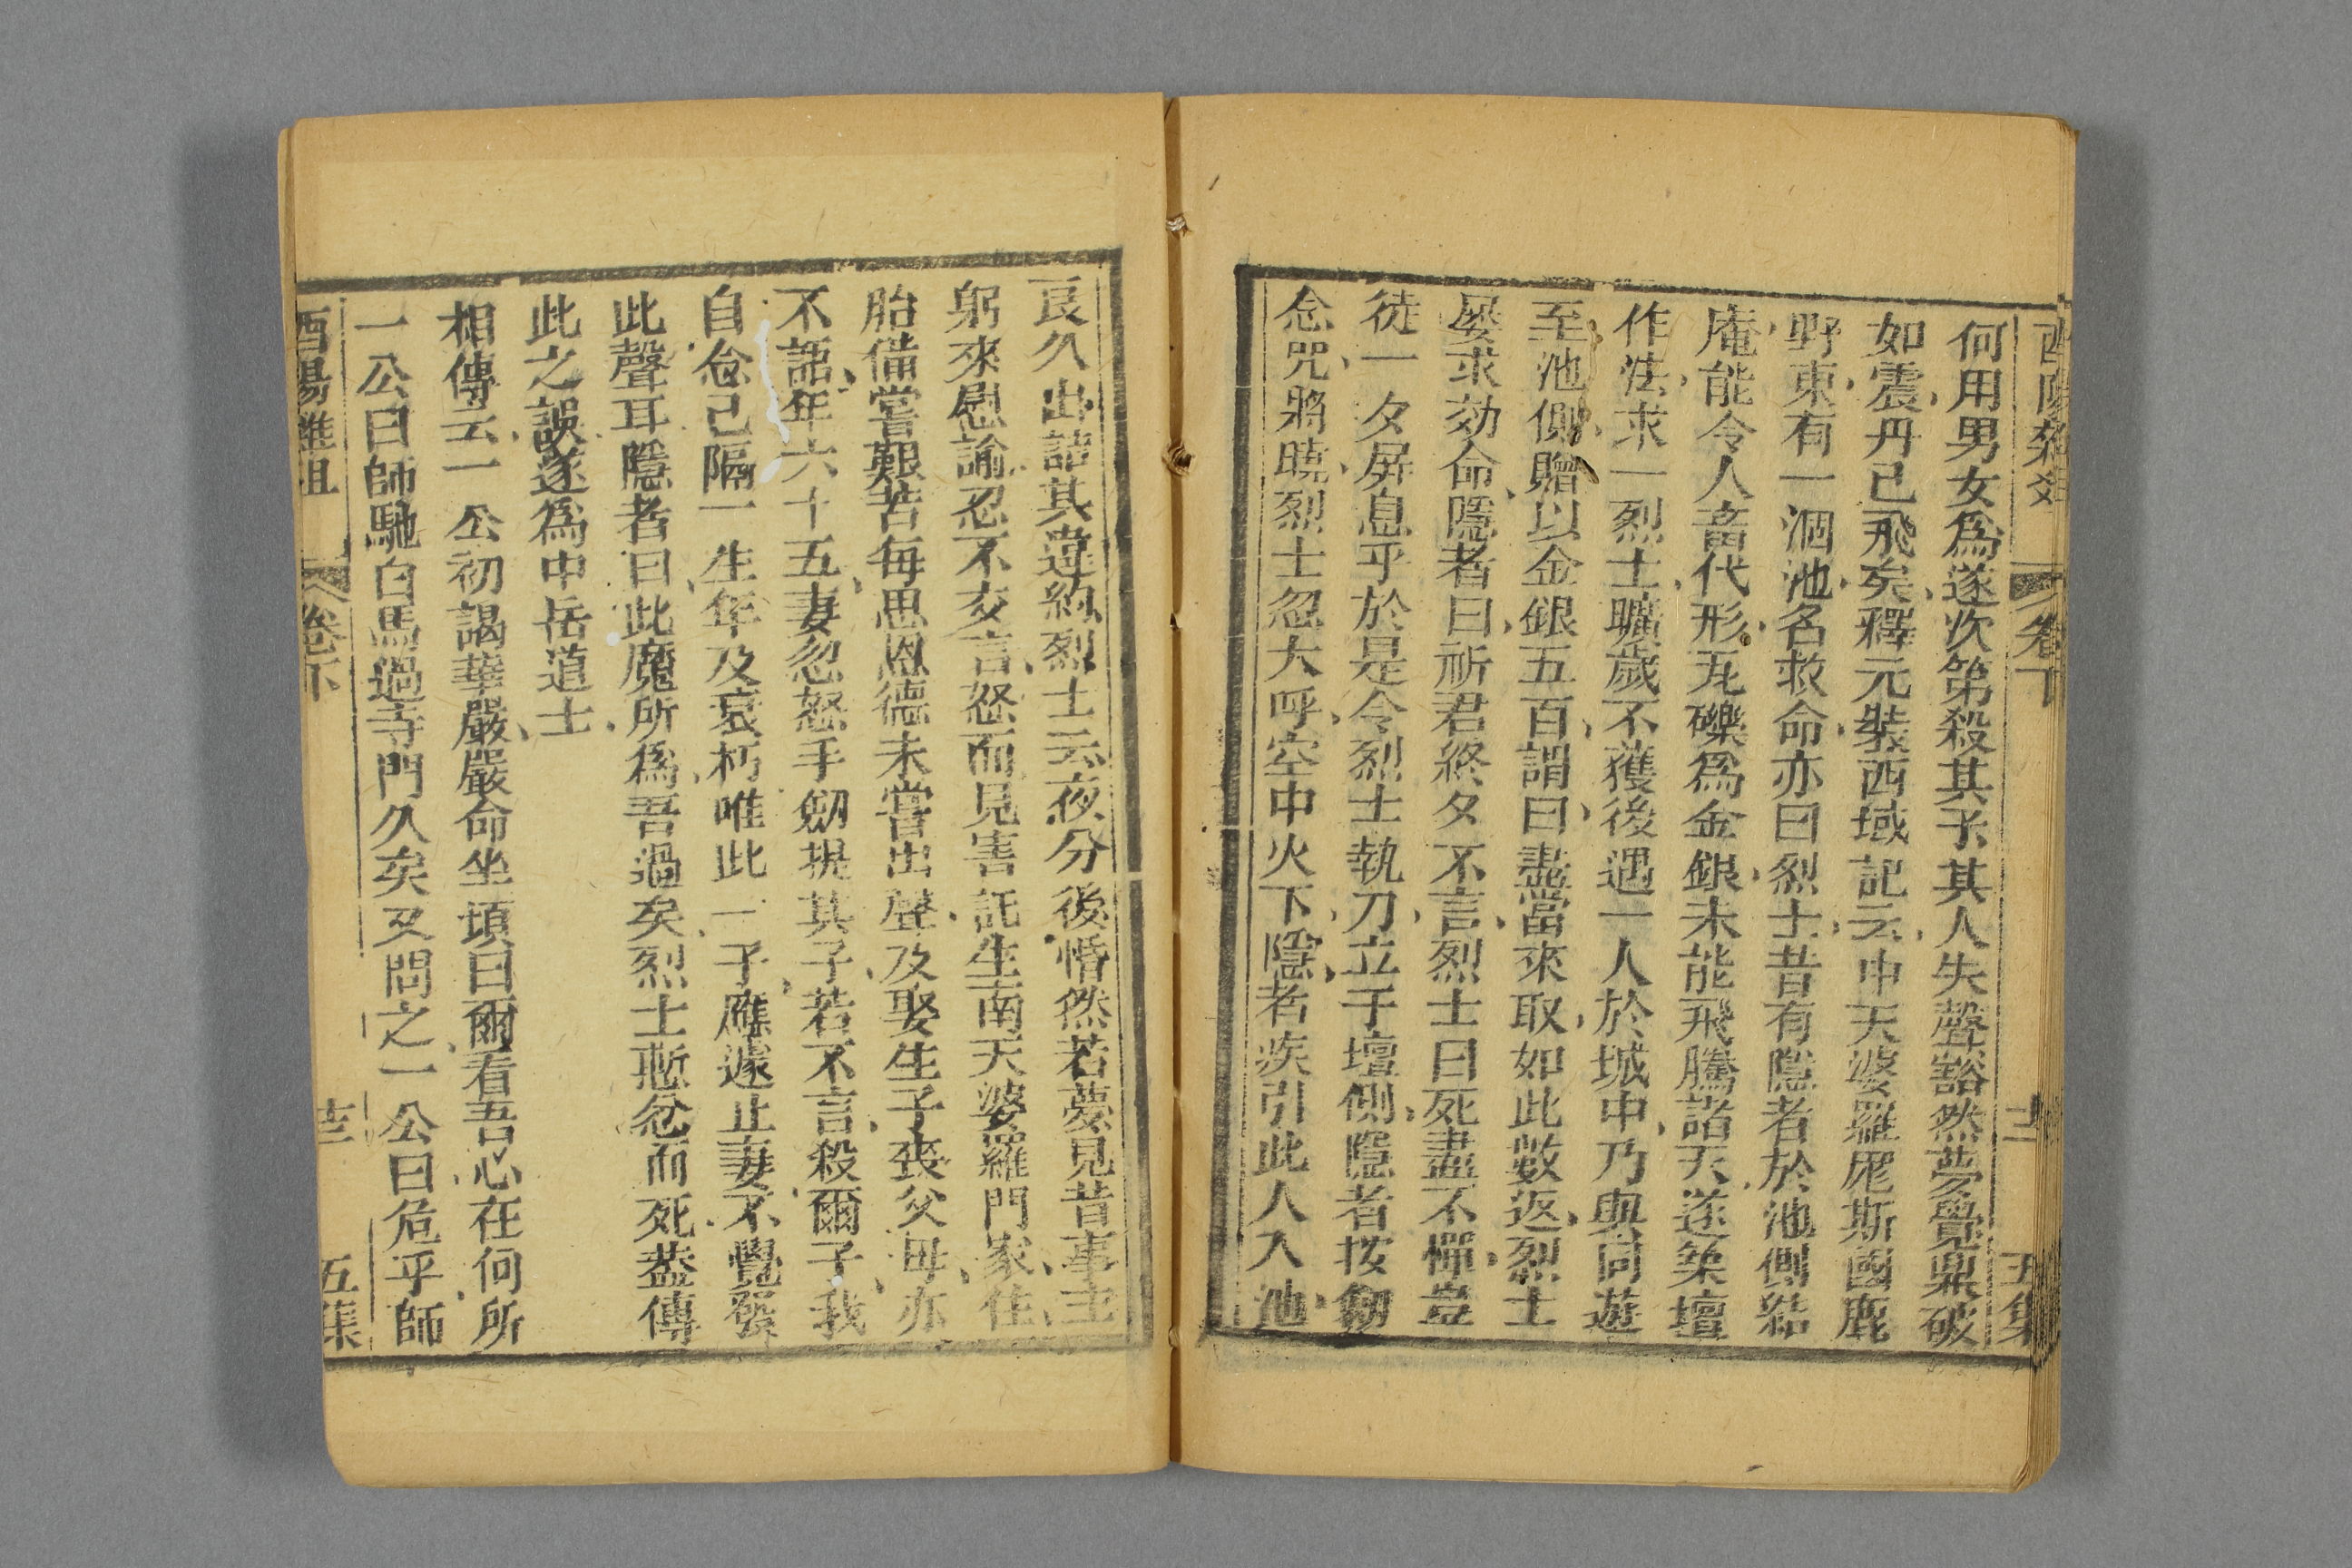 酉陽雜俎 卷下 十二 五集
何用男女爲遂次第殺其子其人失聲豁然夢覺鼎破
如震丹已飛矣釋元奘西域記云中天婆羅痆斯國鹿
野東有一涸池名救命亦曰烈士昔有隱者於池側結
庵能令人畜代形瓦礫爲金銀未能飛騰諸天遂築壇
作法求一烈士曠歲不獲後遇一人於城中乃與同遊
至池側贈以金銀五百謂曰盡當來取如此數返烈士
屢求効命隱者曰祈君終夕不言烈士曰死盡不憚豈
徒一夕屏息乎於是令烈士執刀立于壇側隱者按劒
念咒將曉烈士忽大呼空中火下隱者疾引此人入池
良久出語其違約烈士云夜分後惛然若夢見昔事主
躬來慰諭忍不交言怒而見害託生南天婆羅門家住
胎備嘗艱苦每思恩德未嘗出聲及娶生子喪父母亦
不語年六十五妻忽怒手劒提其子若不言殺爾子我
自念已隔一生年及衰朽唯此一子應遽止妻不覺發
此聲耳隱者曰此魔所爲吾過矣烈士慙忿而死葢傳
此之誤遂爲中岳道士
相傳云一公初謁華嚴嚴命坐頃曰爾看吾心在何所
一公曰師馳白馬過寺門久矣又問之一公曰危乎師
酉陽雜俎 卷下 十三 五集